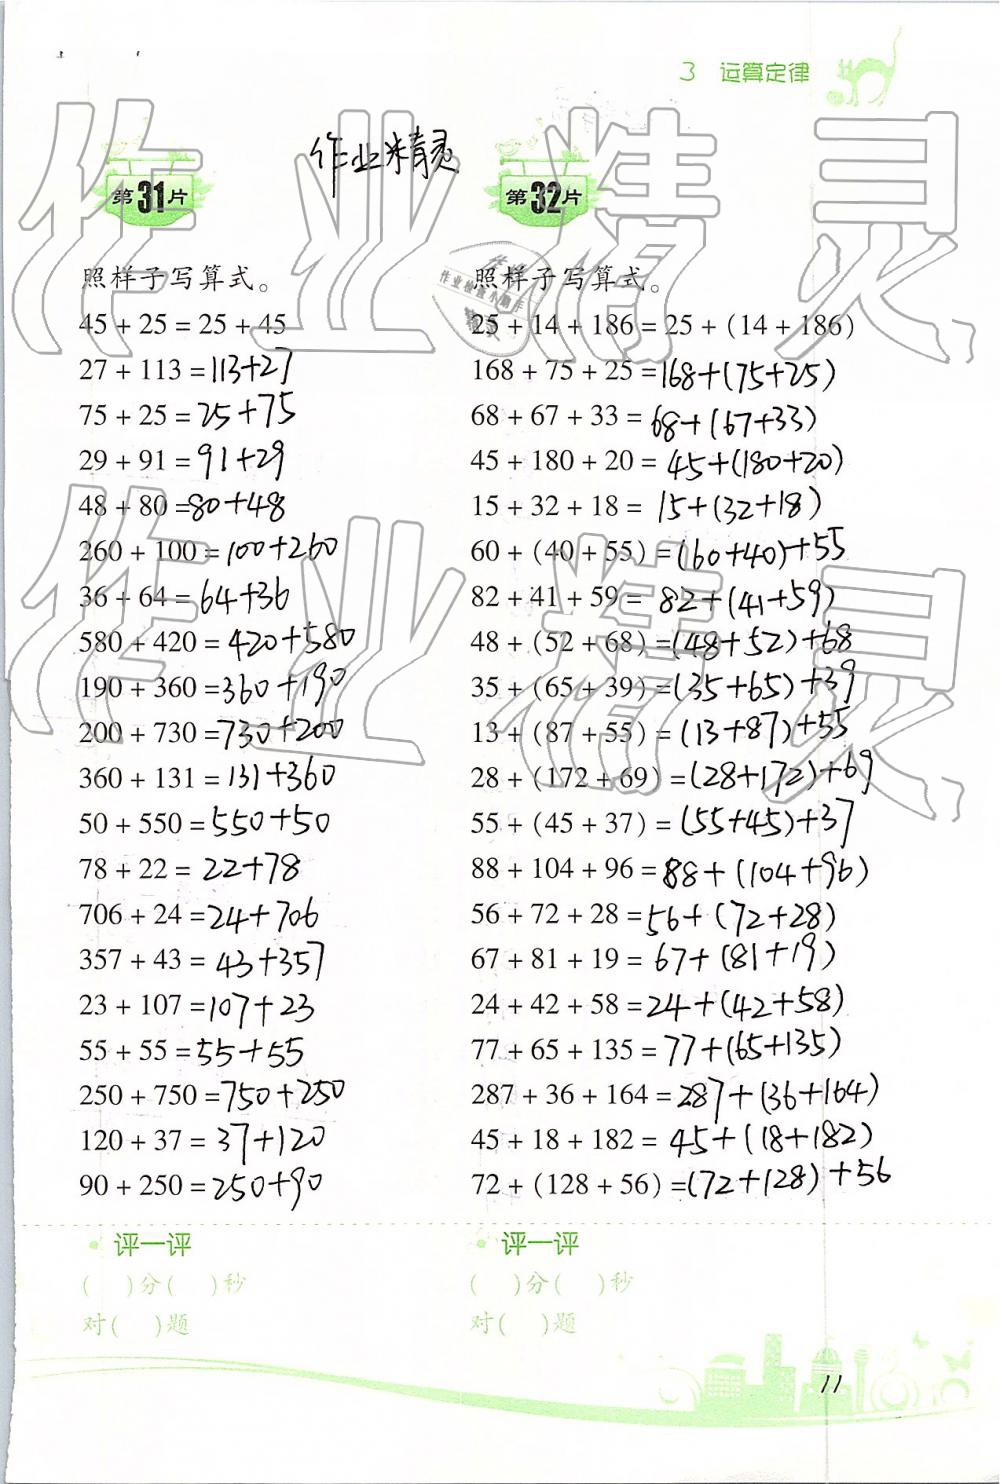 3 运算定律
作业精灵
第31片
照样子写算式。
45 + 25 = 25 + 45
27 + 113 = 113+27
75 + 25 = 25+75
29 + 91 = 91+29
48 + 80 = 80+48
260 + 100 = 100+260
36 + 64 = 64+36
580 + 420 = 420+580
190 + 360 = 360+190
200 + 730 = 730+200
360 + 131 = 131+360
50 + 550 = 550+50
78 + 22 = 22+78
706 + 24 = 24+706
357 + 43 = 43+357
23 + 107 = 107+23
55 + 55 = 55+55
250 + 750 = 750+250
120 + 37 = 37+120
90 + 250 = 250+90
评一评
( )分( )秒
对( )题
第32片
照样子写算式。
25 + 14 + 186 = 25 + (14 + 186)
168 + 75 + 25 = 168+(75+25)
68 + 67 + 33 = 68+(67+33)
45 + 180 + 20 = 45+(180+20)
15 + 32 + 18 = 15+(32+18)
60 + (40 + 55) = (60+40)+55
82 + 41 + 59 = 82+(41+59)
48 + (52 + 68) = (48+52)+68
35 + (65 + 39) = (35+65)+39
13 + (87 + 55) = (13+87)+55
28 + (172 + 69) = (28+172)+69
55 + (45 + 37) = (55+45)+37
88 + 104 + 96 = 88+(104+96)
56 + 72 + 28 = 56+(72+28)
67 + 81 + 19 = 67+(81+19)
24 + 42 + 58 = 24+(42+58)
77 + 65 + 135 = 77+(65+135)
287 + 36 + 164 = 287+(36+164)
45 + 18 + 182 = 45+(18+182)
72 + (128 + 56) = (72+128)+56
评一评
( )分( )秒
对( )题
11
作业精灵
作业精灵